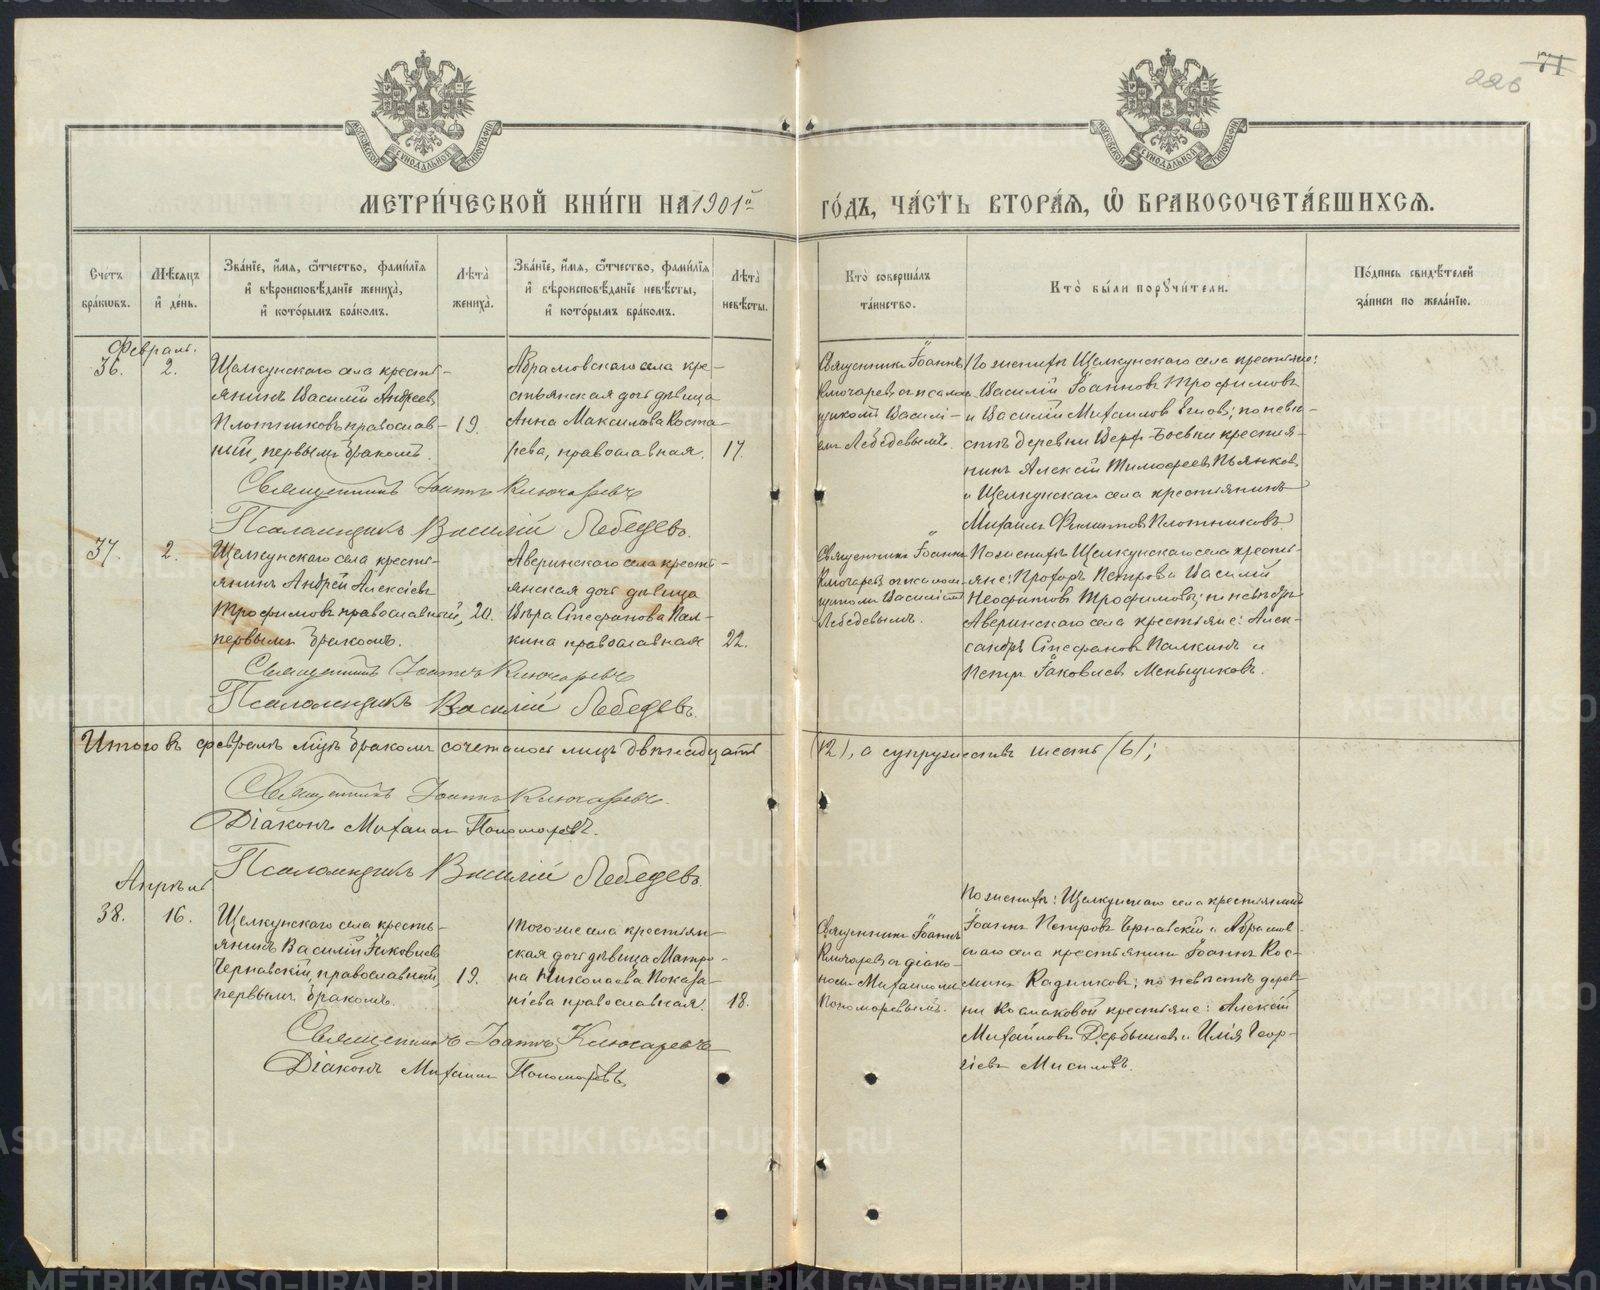 71
226
МОСКОВСКОЙ СѴНОДАЛЬНОЙ ТИПОГРАФІИ
МОСКОВСКОЙ СѴНОДАЛЬНОЙ ТИПОГРАФІИ
МЕТРИ́ЧЕСКОЙ КНИ́ГИ НА 1901й ГО́ДЪ, ЧА́СТЬ ВТОРА́Я, Ѡ БРАКОСОЧЕТА́ВШИХСЯ.
Сче́тъ бра́кѡвъ.
Мѣ́сяцъ и҆ де́нь.
Зва́нїе, и҆́мя, ѻ҆́тчество, фами́лїя и҆ вѣроисповѣ́данїе жениха̀, и҆ кото́рымъ бра́комъ.
Лѣта̀ жениха̀.
Зва́нїе, и҆́мя, ѻ҆́тчество, фами́лїя и҆ вѣроисповѣ́данїе невѣ́сты, и҆ кото́рымъ бра́комъ.
Лѣта̀ невѣ́сты.
Кто̀ соверша́лъ та́инство.
Кто̀ бы́ли порꙋчи́тели.
По́дпись свидѣ́телей за́писи по жела́нїю.
Февраль.
36.
2.
Щелкунскаго села кресть-
янинъ Василій Андреевъ
Плотниковъ православ-
ный, первымъ бракомъ.
19.
Абрамовскаго села кре-
стьянская дочь дѣвица
Анна Максимова Коста-
рева, православная.
17.
Священникъ Іоаннъ
Ключаревъ съ псалом-
щикомъ Василі-
емъ Лебедевымъ.
По женихѣ Щелкунскаго села крестьяне:
Василій Іоанновъ Трофимовъ
и Василій Михаиловъ ; по невѣ-
стѣ деревни Верх-Боевки крестья-
нинъ Алексѣй Тимофеевъ Пьянковъ
и Щелкунскаго села крестьянинъ
Михаилъ Плотниковъ.
Священникъ Іоаннъ Ключаревъ
Псаломщикъ Василій Лебедевъ.
37.
2.
Щелкунскаго села кресть-
янинъ Андрей Алексѣевъ
Трофимовъ православный,
первымъ бракомъ.
20.
Аверинскаго села кресть-
янская дочь дѣвица
Вѣра Стефанова Пал-
кина православная
22.
Священникъ Іоаннъ
Ключаревъ съ псалом-
щикомъ Василіемъ
Лебедевымъ.
По женихѣ Щелкунскаго села кресть-
яне: Прохоръ Петровъ и Василій
Неофитовъ Трофимовы; по невѣстѣ
Аверинскаго села крестьяне: Алек-
сандръ Стефановъ Палкинъ и
Петръ Іаковлевъ Меньщиковъ.
Священникъ Іоаннъ Ключаревъ
Псаломщикъ Василій Лебедевъ.
Итого въ февралѣ мцѣ бракомъ сочеталось лицъ двѣнадцать (12), а супружествъ шесть (6);
Священникъ Іоаннъ Ключаревъ.
Діаконъ Михаилъ Пономаревъ.
Псаломщикъ Василій Лебедевъ.
Апрѣль
38.
16.
Щелкунскаго села кресть-
янинъ Василій Іаковлевъ
Чернавскій, православный,
первымъ бракомъ.
19.
Того же села крестьян-
ская дочь дѣвица Матро-
на Николаева Показа-
ніева православная.
18.
Священникъ Іоаннъ
Ключаревъ съ діако-
номъ Михаиломъ
Пономаревымъ.
По женихѣ: Щелкунскаго села крестьянинъ
Іоаннъ Петровъ Чернавскій и Абрамов-
скаго села крестьянинъ Іоаннъ Кос-
минъ Кадниковъ; по невѣстѣ дерев-
ни Космаковой крестьяне: Алексѣй
Михайловъ Дербышевъ и Илія Геор-
гіевъ Мисиловъ.
Священникъ Іоаннъ Ключаревъ
Діаконъ Михаилъ Пономаревъ.
METRIKI.GASO-URAL.RU